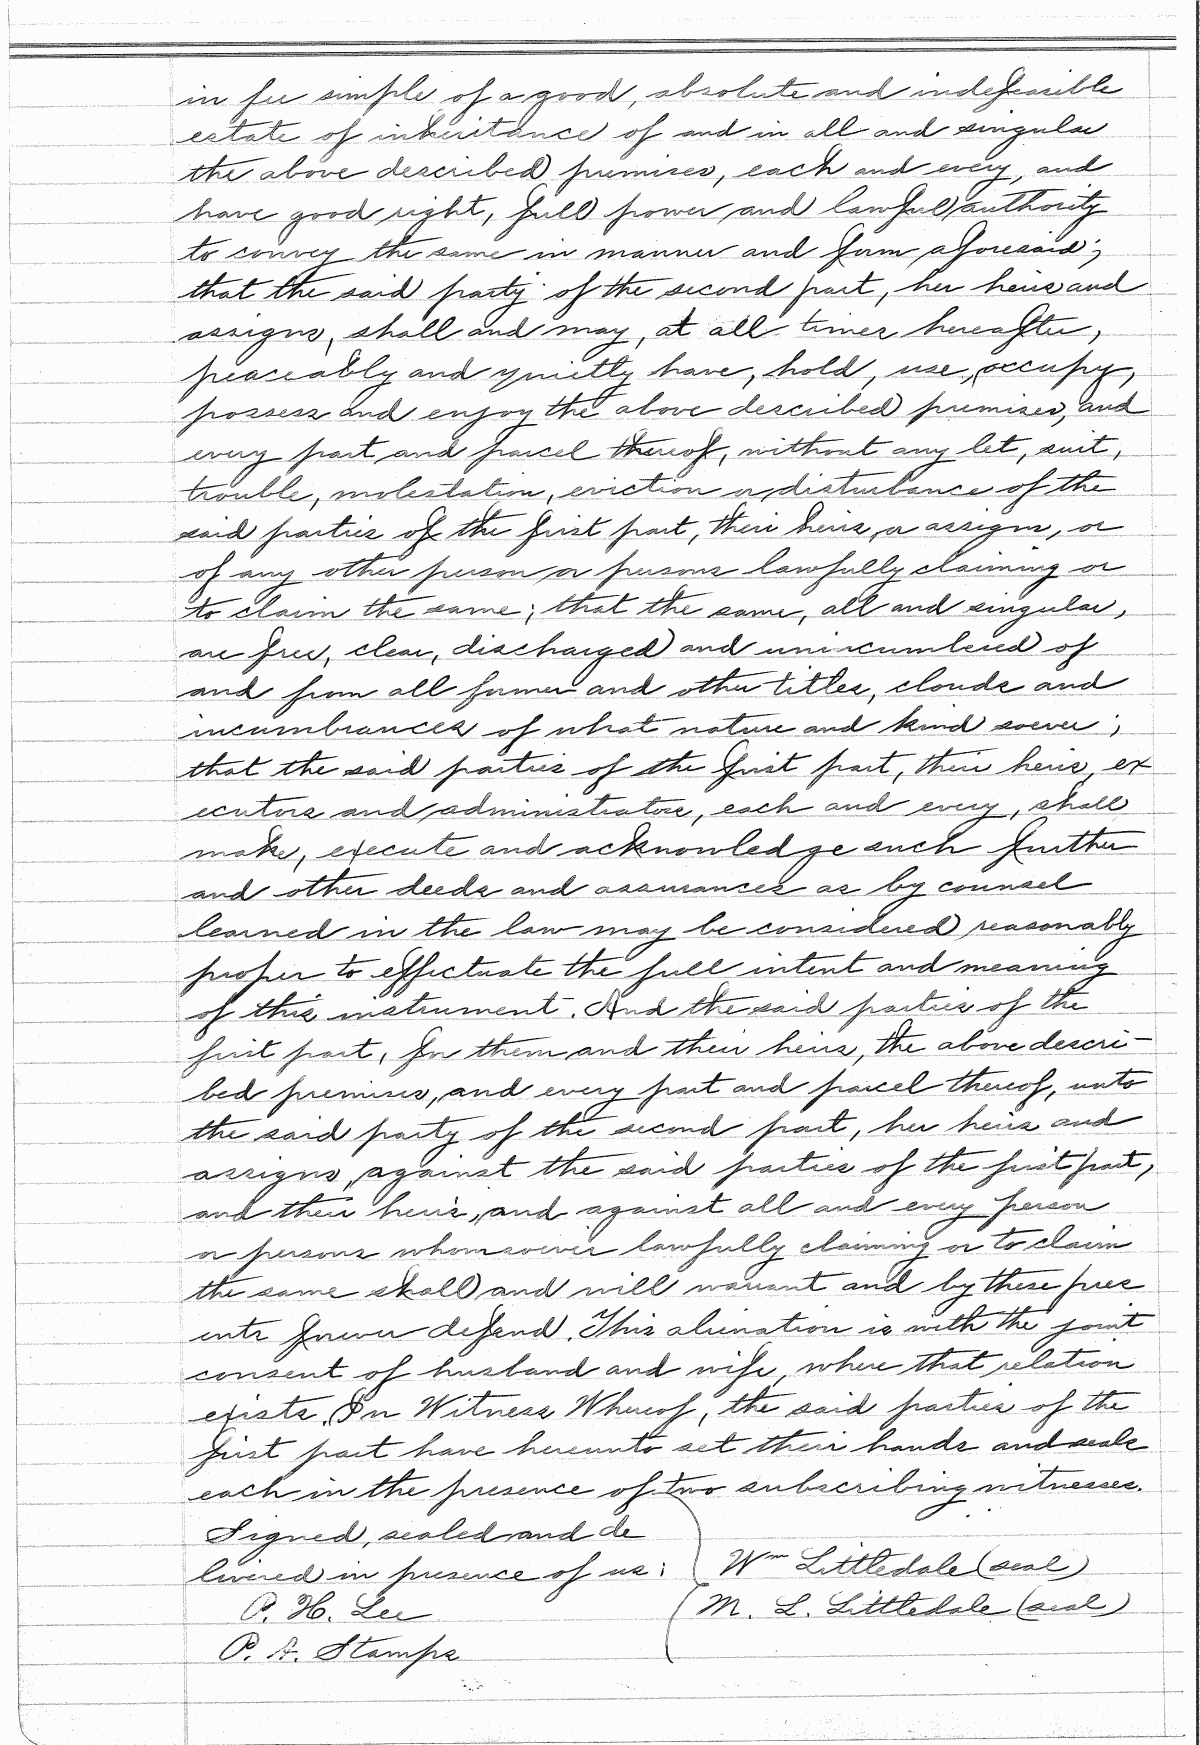 in fee simple of a good, absolute and indefeasible
estate of inheritance of and in all and singular
the above described premises, each and every, and
have good right, full power and lawful authority
to convey the same in manner and form aforesaid;
that the said party of the second part, her heirs and
assigns, shall and may, at all times hereafter,
peaceably and quietly have, hold, use, occupy,
possess and enjoy the above described premises, and
every part and parcel thereof, without any let, suit,
trouble, molestation, eviction or disturbance of the
said parties of the first part, their heirs, or assigns, or
of any other person or persons lawfully claiming or
to claim the same; that the same, all and singular,
are free, clear, discharged and unincumbered of
and from all former and other titles, clouds and
incumbrances of what nature and kind soever;
that the said parties of the first part, their heirs, ex
ecutors and administrators, each and every, shall
make, execute and acknowledge such further
and other deeds and assurances as by counsel
learned in the law may be considered reasonably
proper to effectuate the full intent and meaning
of this instrument. And the said parties of the
first part, for them and their heirs, the above descri-
bed premises, and every part and parcel thereof, unto
the said party of the second part, her heirs and
assigns, against the said parties of the first part,
and their heirs, and against all and every person
or persons whomsoever lawfully claiming or to claim
the same shall and will warrant and by these pres
ents forever defend. This alienation is with the joint
consent of husband and wife, where that relation
exists. In Witness Whereof, the said parties of the
first part have hereunto set their hands and seals
each in the presence of two subscribing witnesses.
Signed, sealed and de
livered in presence of us: Wm Littledale (seal)
P. H. Lee M. L. Littledale (seal)
P. A. Stamps